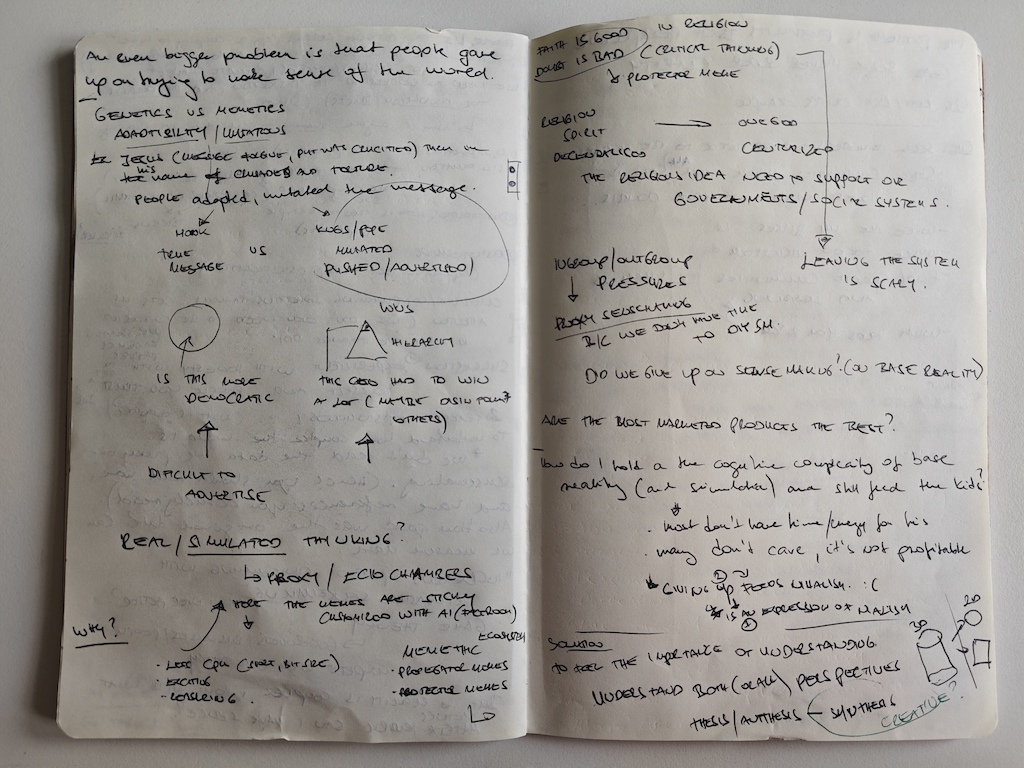 An even bigger problem is that people gave
up on trying to make sense of the world.
GENETICS VS MEMETICS
ADAPTIBILITY / MUTATIONS
JESUS (CHEEK, PUT WAS CRUCIFIED) THEN IN
his
the name of CRUSADES AND TORTURE.
PEOPLE adapted, mutated the message.
MONK
TRUE
MESSAGE
VS
KINGS/POPE
MUTATED
PUSHED/ADVERTISED/
WINS
HIERARCHY
IS THIS MORE
DEMOCRATIC
THIS CEO HAD TO WIN
A LOT (MAYBE DISAPPOINT
OTHERS)
DIFICULT TO
ADVERTISE
REAL/SIMULATED THINKING?
PROXY / ECHO CHAMBERS
HERE THE MEMES ARE STICKY
CUSTOMIZED WITH AI (FACEBOOK)
ECOSYSTEM
WHY?
MEMETIC
· LESS CPU (SHORT, BITSIZE)
· EXCITING
· REASSURING.
· PROPAGATOR MEMES
· PROTECTOR MEMES
FAITH IS GOOD
IN RELIGION
DOUBT IS BAD (CRITICAL THINKING)
PROTECTOR MEME
RELIGION
SPIRIT
DECENTRALISED
ONE GOD
CENTERIZED
THE RELIGIOUS IDEA NEED TO SUPPORT OR
GOVERNMENTS/SOCIAL SYSTEMS.
INGROUP/OUTGROUP
PRESSURES
LEAVING THE SYSTEM
IS SCARY.
PROXY SENSEMAKING
B/C WE DON'T HAVE TIME
TO DIY SM.
DO WE GIVE UP ON SENSE MAKING? (ON BASE REALITY)
ARE THE MOST MARKETED PRODUCTS THE BEST?
How do I hold a the cognitive complexity of base
reality (and simulation) and still feed the kids?
· most don't have time/energy for this
· many don't care, it's not profitable
GIVING UP FEEDS NIHALISM. :(
IS AN EXPRESSION OF NIHALISM
SOLUTION
TO FEEL THE IMPORTANCE OF UNDERSTANDING
UNDERSTAND BOTH (OR ALL) PERSPECTIVES
THESIS/ANTITHESIS — SYNTHESIS
CREATIVE?
3D
2D